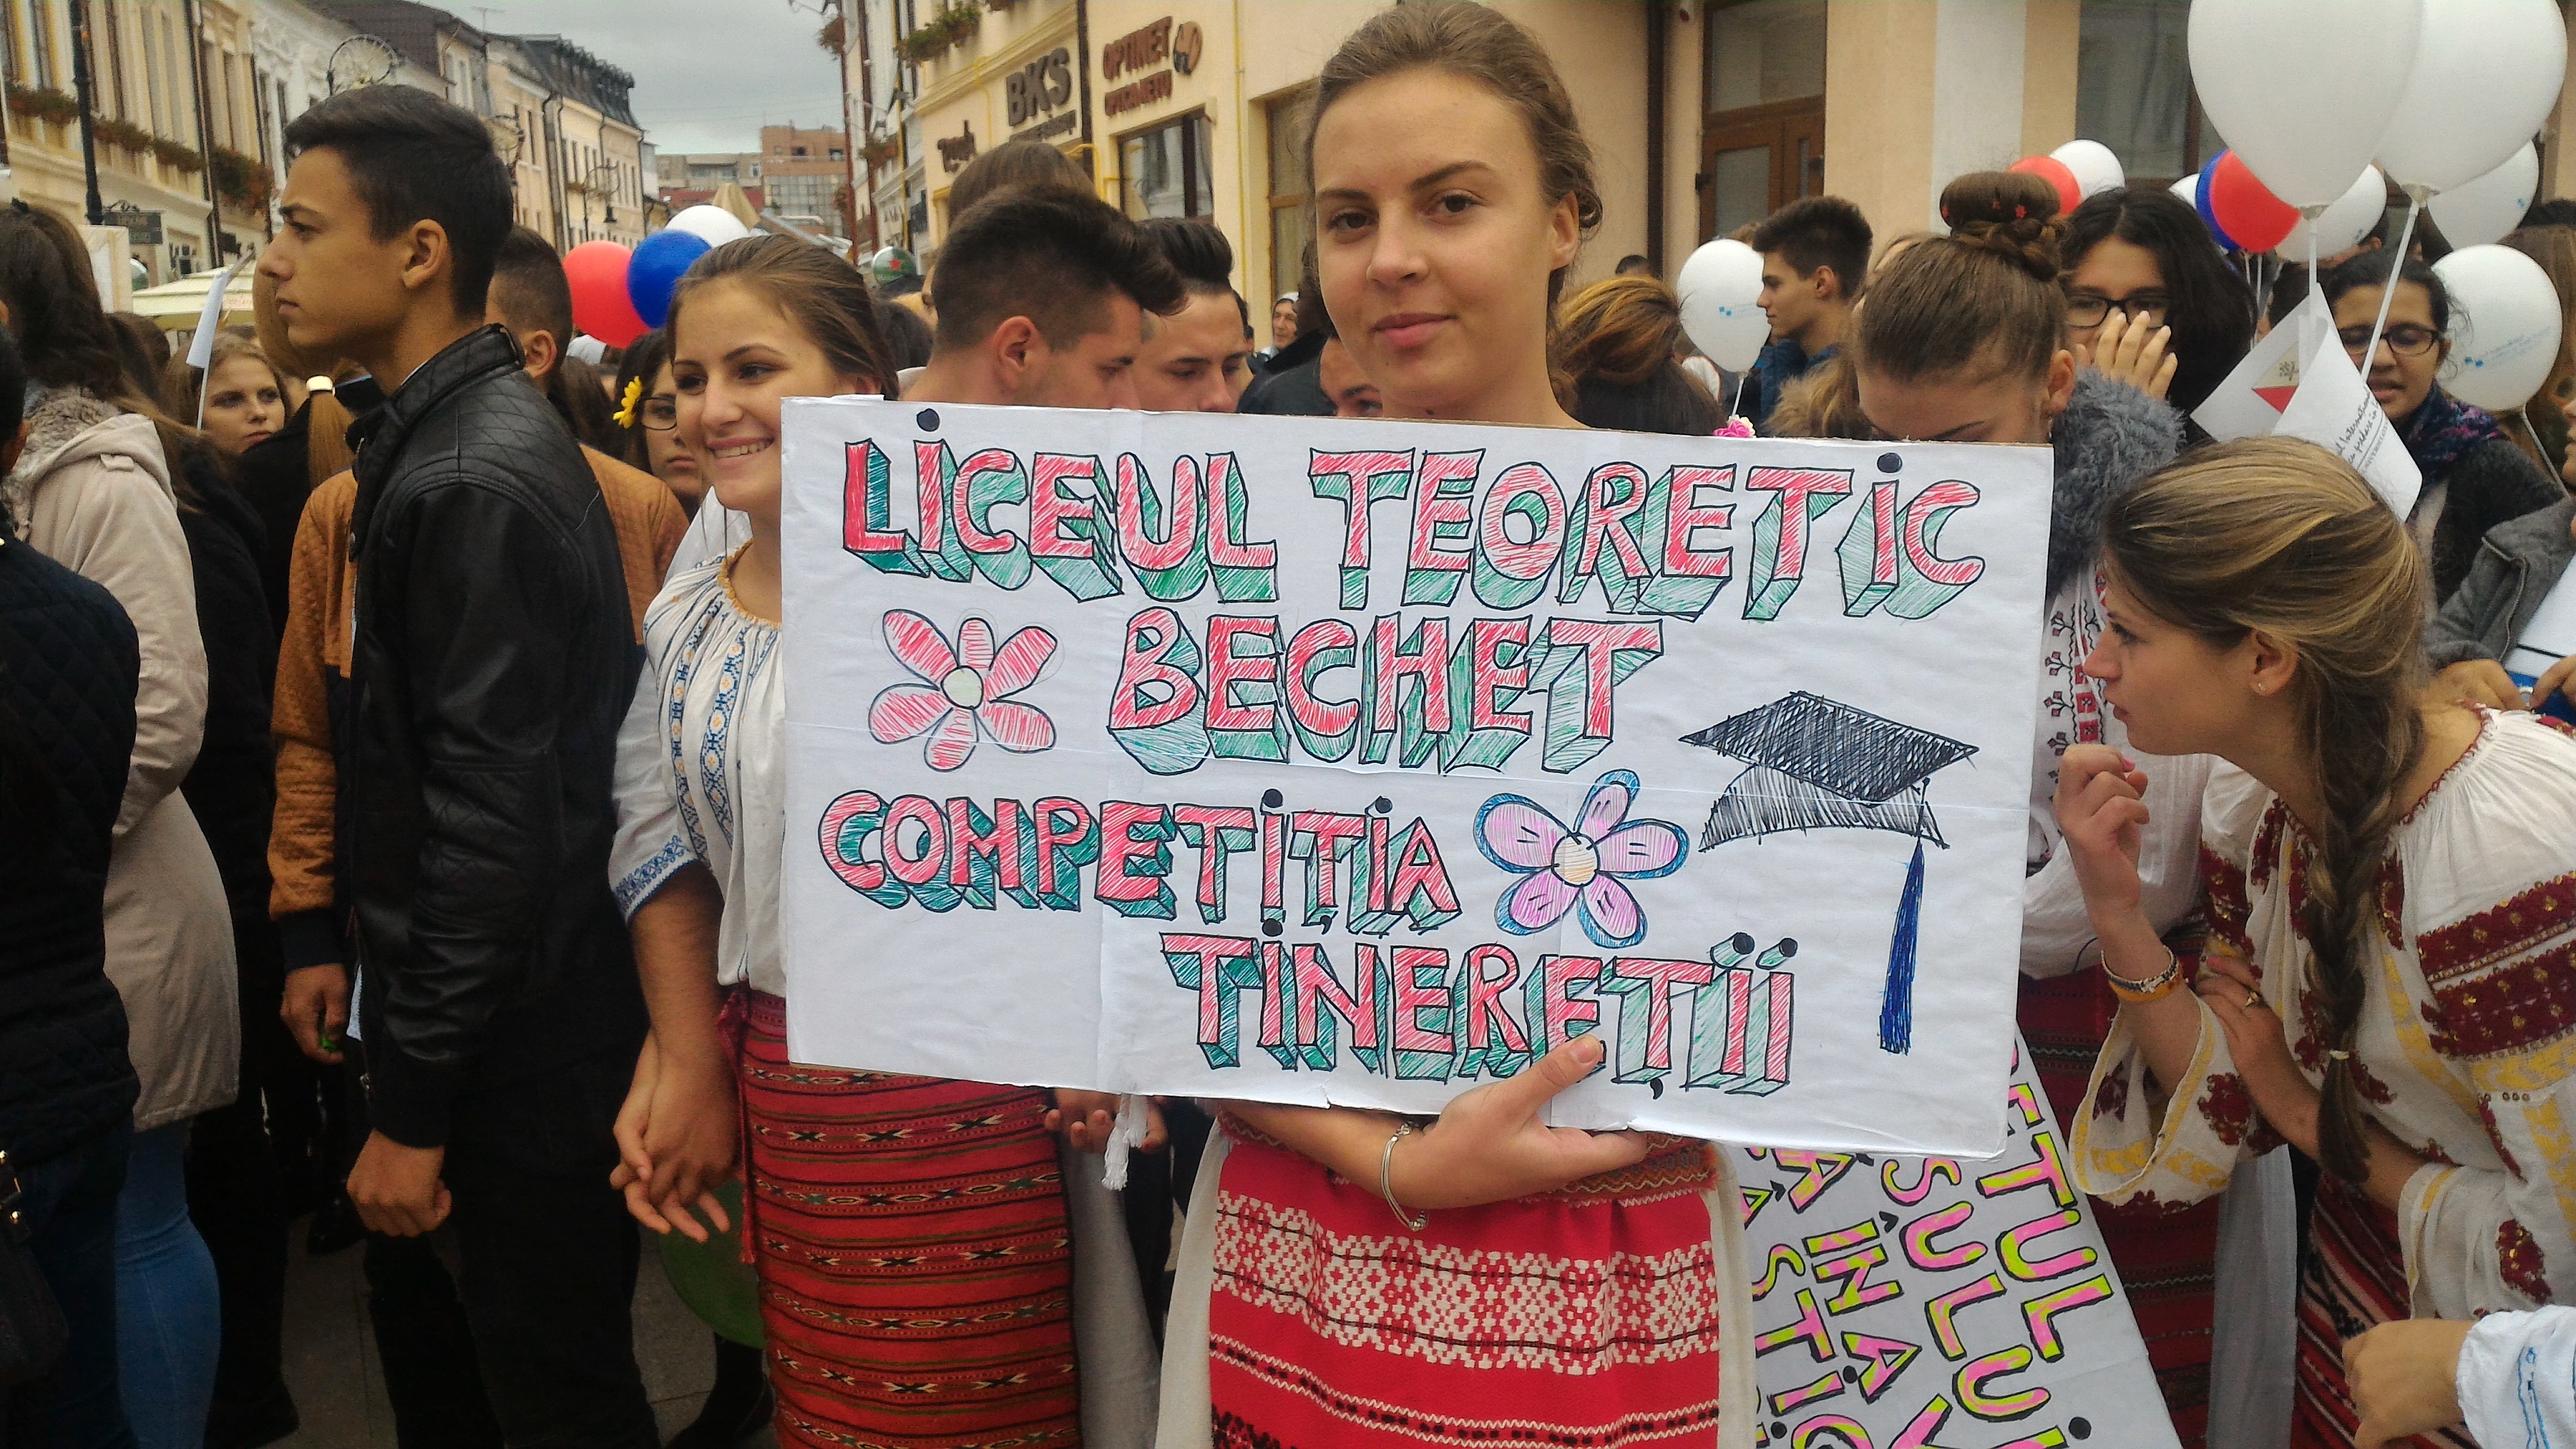 BKS
OPTINET
LICEUL TEORETIC
BECHET
COMPETIȚIA
TINEREȚII
TUL
SULUI
ÎNA